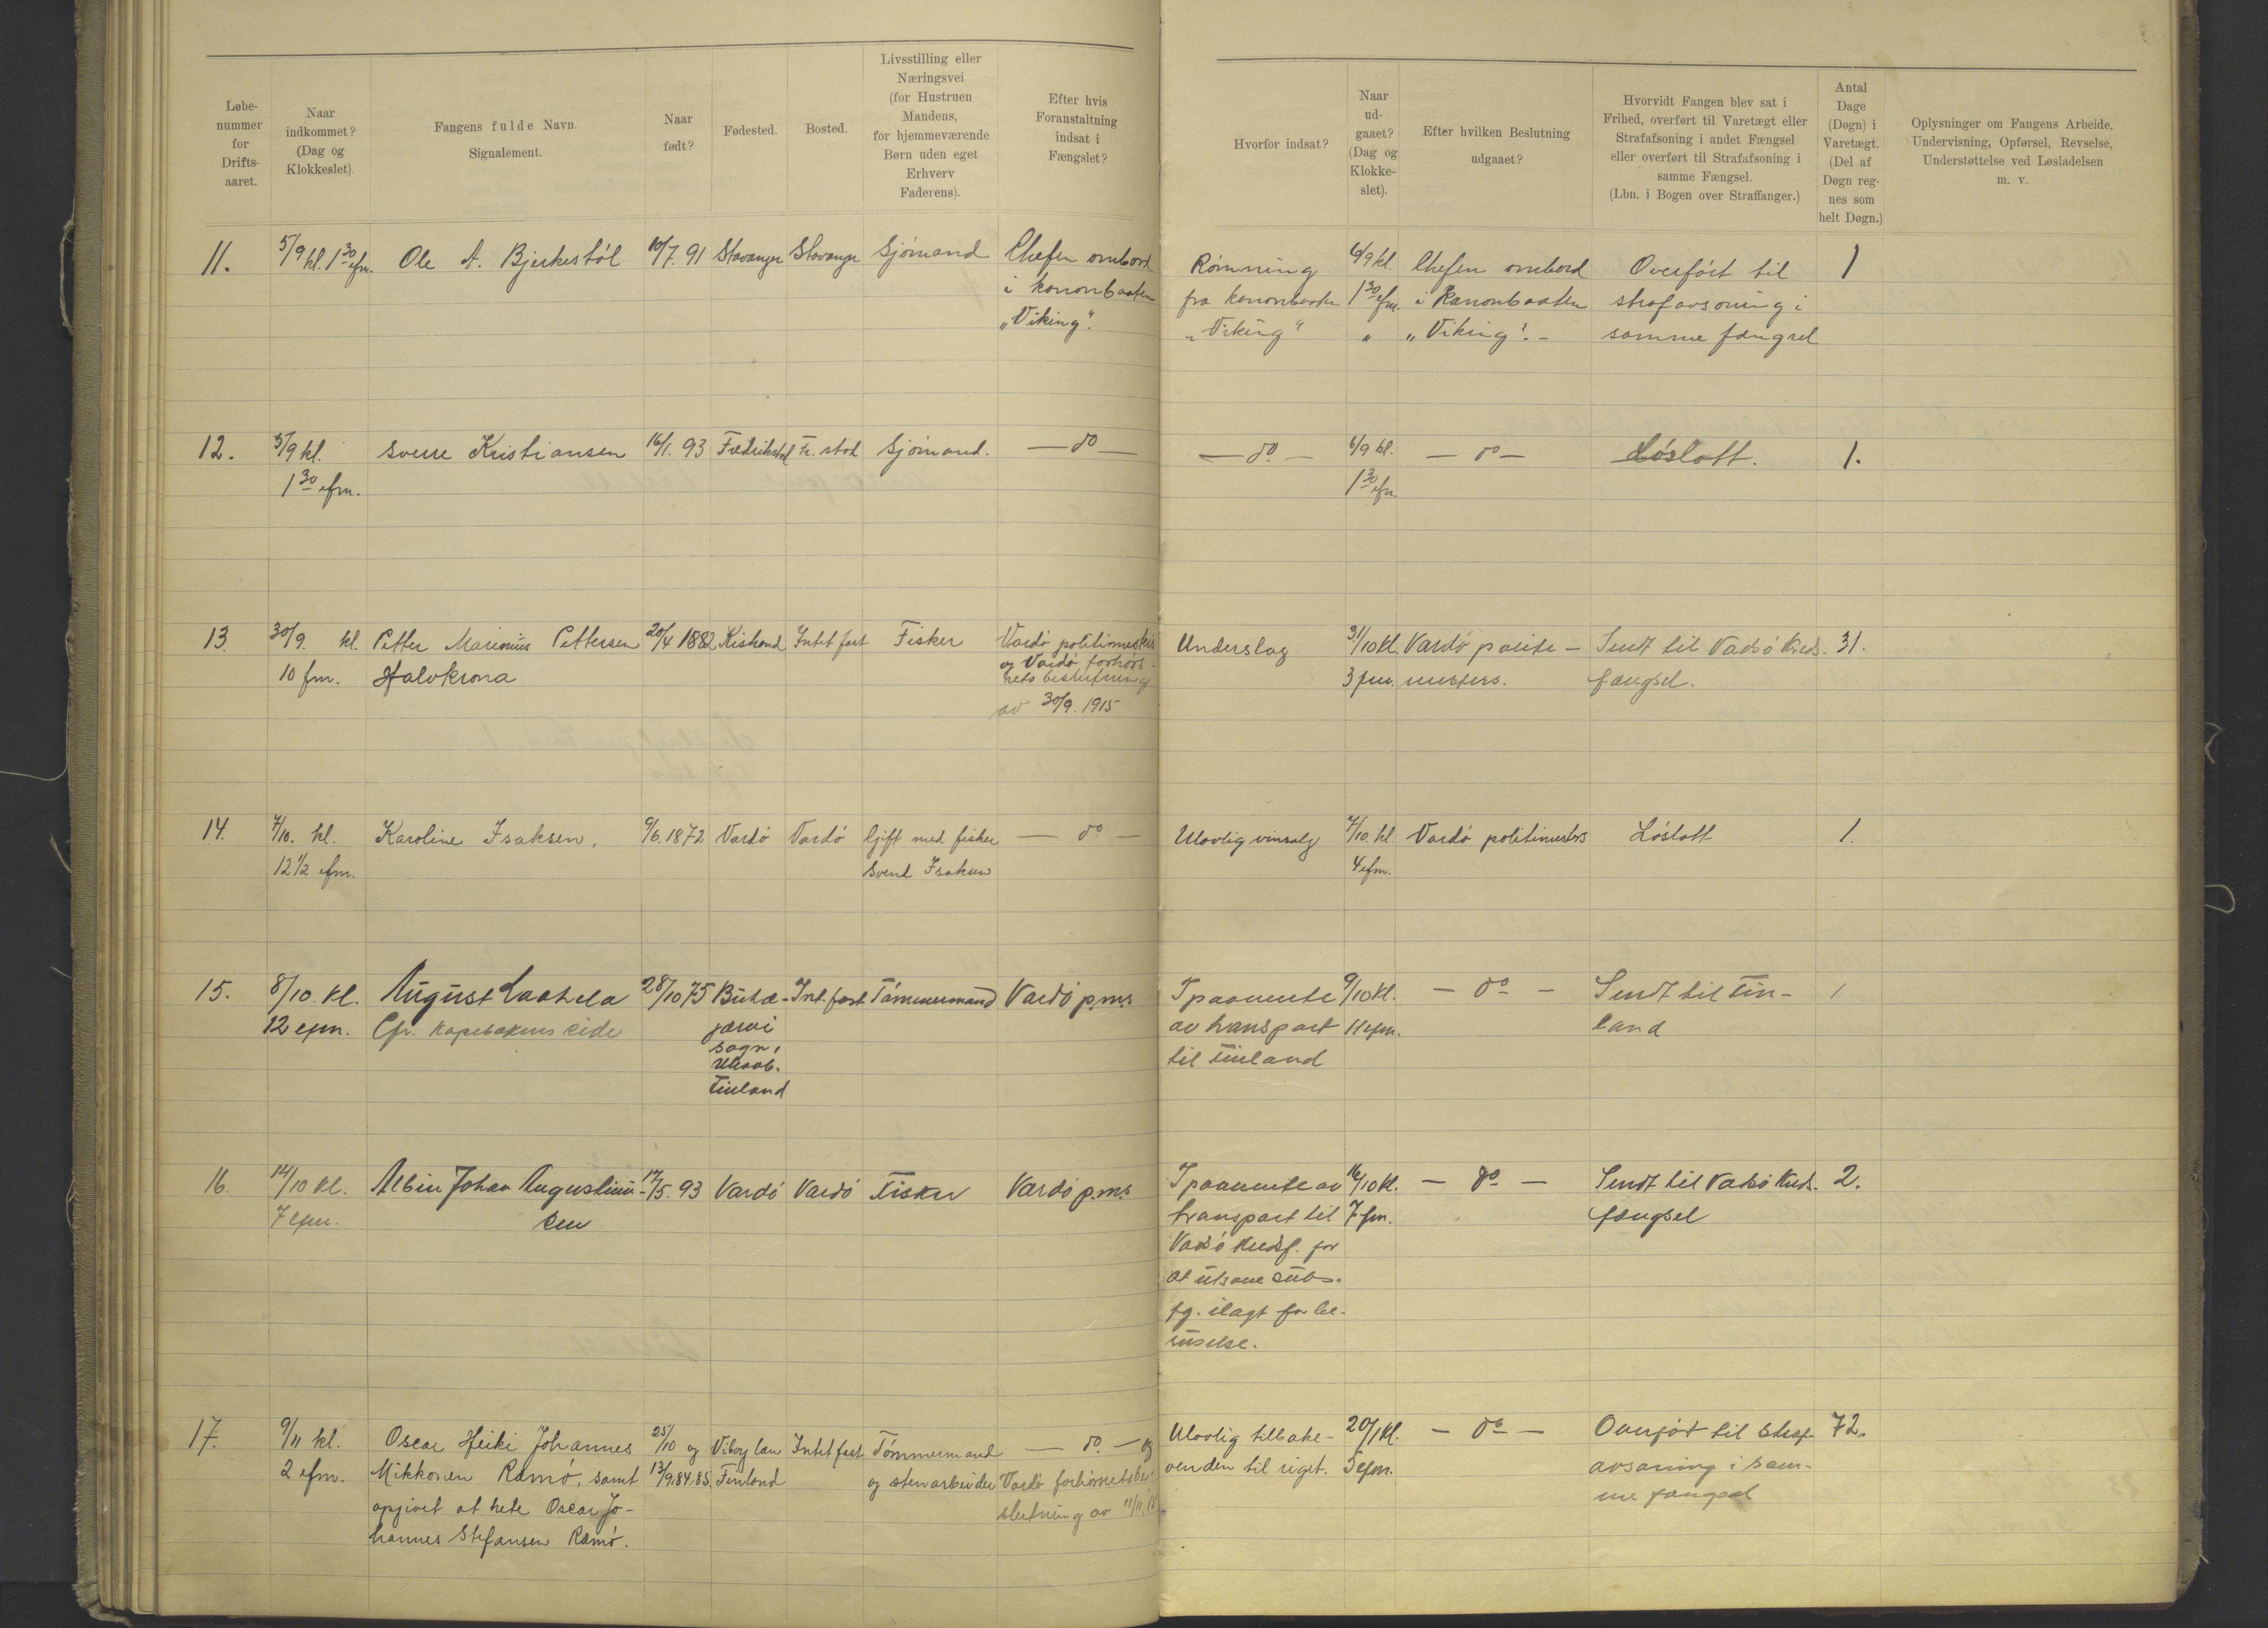 Løbe-
nummer
for
Drifts-
aaret.
Naar
indkommet?
(Dag og
Klokkeslet).
Fangens fulde Navn.
Signalement.
Naar
født?
Fødested.
Bosted.
Livsstilling eller
Næringsvei
(for Hustruen
Mandens,
for hjemmeværende
Børn uden eget
Erhverv
Faderens).
Efter hvis
Foranstaltning
indsat i
Fængslet?
Hvorfor indsat?
Naar
ud-
gaaet?
(Dag og
Klokke-
slet).
Efter hvilken Beslutning
udgaaet?
Hvorvidt Fangen blev sat i
Frihed, overført til Varetægt eller
Strafafsoning i andet Fængsel
eller overført til Strafafsoning i
samme Fængsel.
(Lbn. i Bogen over Straffanger.)
Antal
Dage
(Døgn) i
Varetægt.
(Del af
Døgn reg-
nes som
helt Døgn.)
Oplysninger om Fangens Arbeide,
Undervisning, Opførsel, Revselse,
Understøttelse ved Løsladelsen
m. v.
11.
5/9 kl. 1 30 efm.
Ole A. Bjerkestøl
10/7. 91
Stavanger
Stavanger
Sjømand
Chefen ombord
i kanonbaaten
„Viking".
Rømning
fra kanonbaaten
„Viking"
6/9 kl.
1 30 efm.
"
Chefen ombord
i Kanonbaaten
„Viking". –
Overført til
strafavsoning i
samme fængsel
1
12.
5/9 kl.
1 30 efm.
Sverre Kristiansen
16/1. 93
Fredrikstad
Fr. stad
Sjømand.
— do —
— do. —
6/9 kl.
1 30 efm.
— do —
Løslatt.
1.
13.
30/9. kl.
10 fm.
Petter Marenius Pettersen
Halvkrona
20/4 1882
Kistrand
Intet fast
Fisker
Vardø politimesters
og Vardø forhørs-
rets beslutning
av 30/9. 1915
Underslag
31/10 kl.
3 fm.
Vardø politi –
mesters.
Sendt til Vadsø Kreds.
fængsel.
31.
14.
7/10. kl.
12 1/2 efm.
Karoline Isaksen.
9/6. 1872
Vardø
Vardø
Gift med fisker
Svend Isaksen
— do —
Ulovlig vinsalg
7/10. kl.
4 efm.
Vardø politimesters
Løslatt
1.
15.
8/10. kl.
12 efm.
August Laahela
Cfr. Kopibokens side
28/10 75
järvi
sogn,
Uleaab.
Finland
Int. fast
Tømmermand
Vardø p.ms
I paavente
av transport
til Finland
9/10 kl.
11 efm.
— do —
Sendt til Fin-
land
1
16.
14/10 kl.
7 efm.
Albin Johan Augustinu-
sen
17/5. 93
Vardø
Vardø
Fisker
Vardø p.ms
I paavente av
transport til
Vadsø Kredsf. for
at utsone subs.
fg. ilagt for be-
ruselse.
16/10 kl.
7 fm.
— do —
Sendt til Vadsø Kreds.
fængsel
2.
17.
9/11 kl.
2 efm.
Oscar Heiki Johannes
Mikkonen Rämö, samt
opgivet at hete Oscar Jo-
hannes Stefansen Rämö.
25/10 og
13/9. 84. 85.
Viborg län
Finland
Intet fast
Tømmermand
og stenarbeider
— do. — og
Vardø forhørsretsbe-
slutning av 11/11. 15
Ulovlig tilbake-
venden til riget.
20/1 kl.
5 efm.
— do —
Overført til straf-
avsoning i sam-
me fængsel
72.